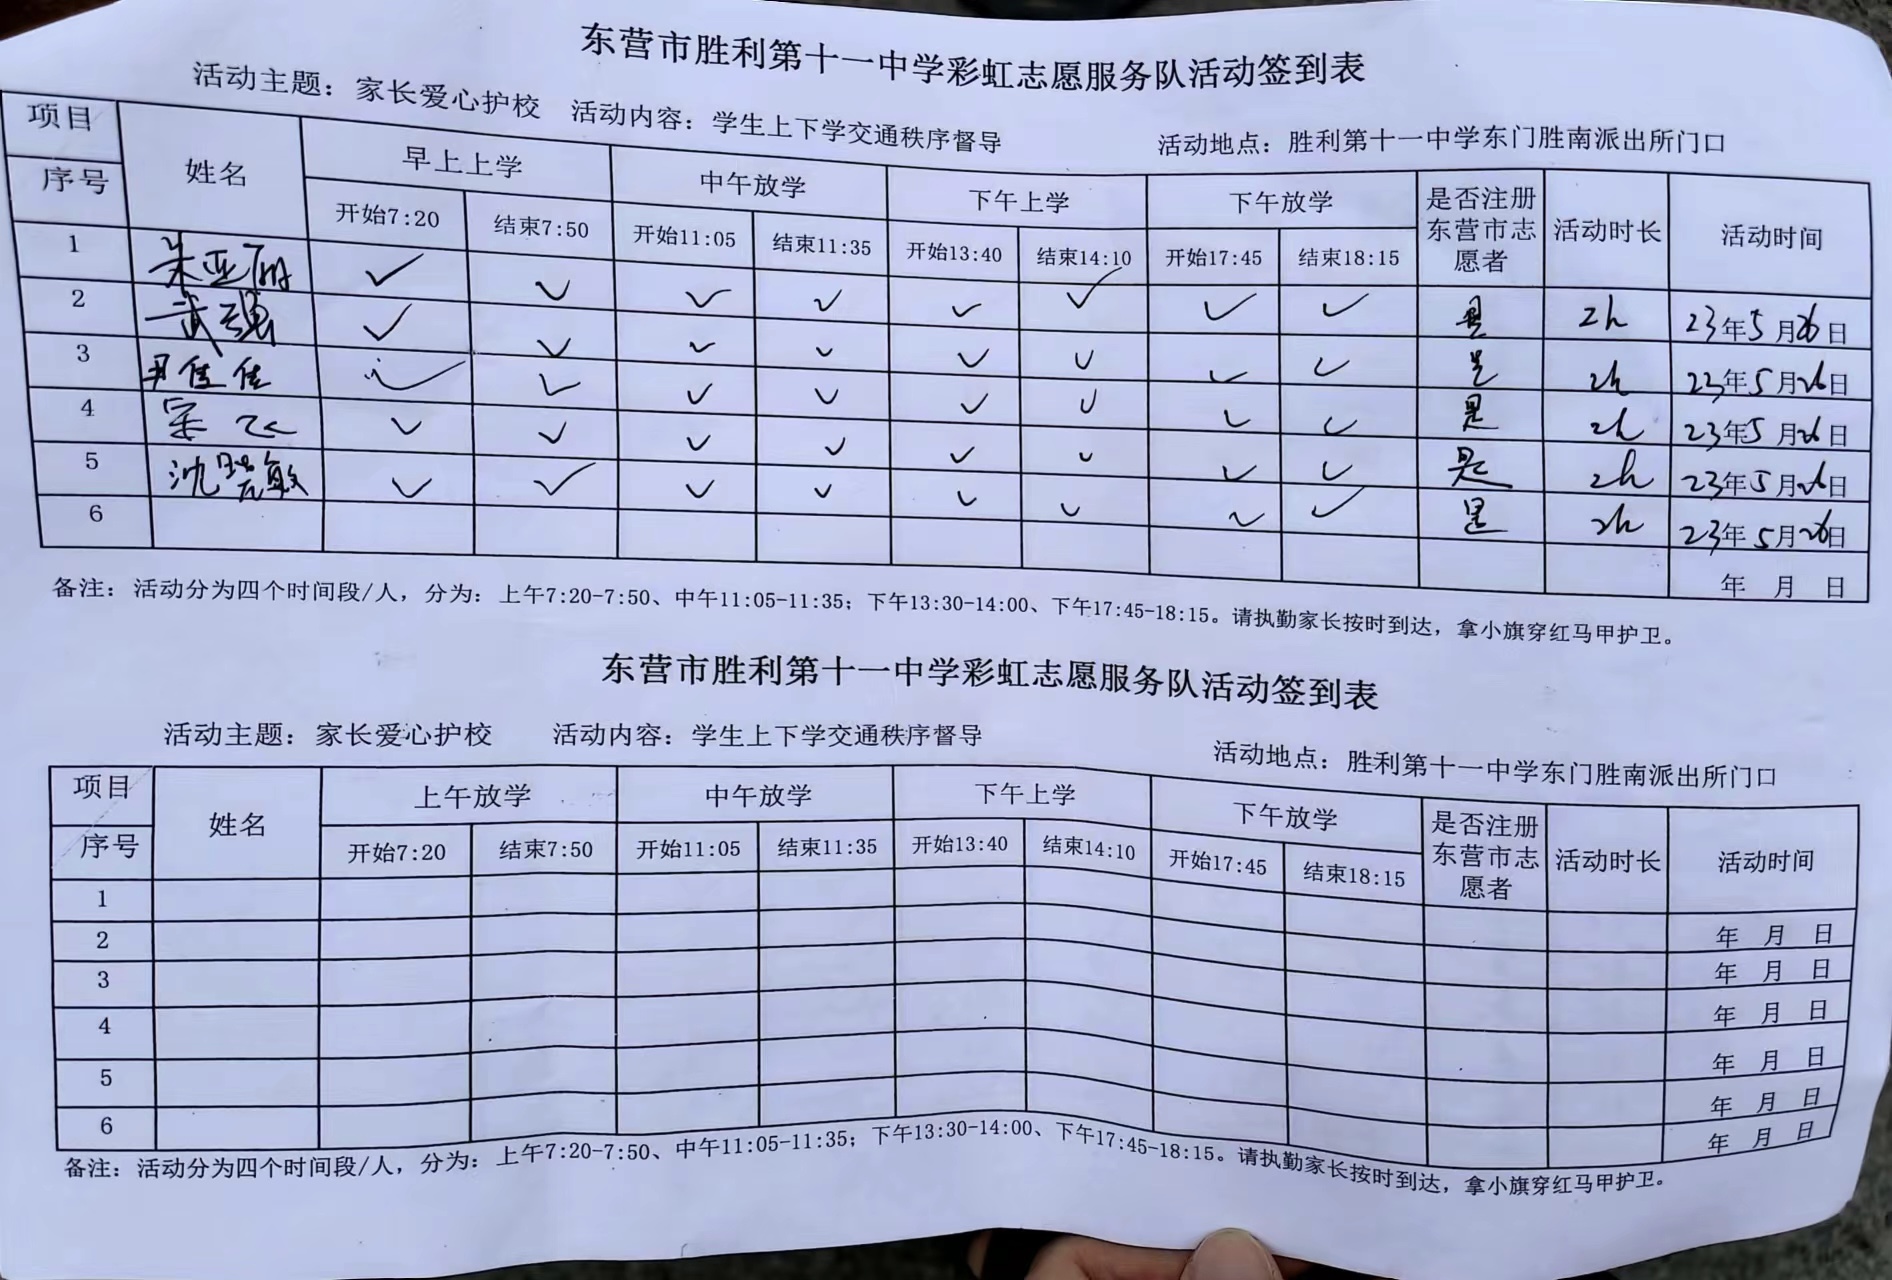 东营市胜利第十一中学彩虹志愿服务队活动签到表
活动主题：家长爱心护校 活动内容：学生上下学交通秩序督导 活动地点：胜利第十一中学东门胜南派出所门口
项目 序号 姓名 早上上学 中午放学 下午上学 下午放学 是否注册东营市志愿者 活动时长 活动时间
开始7:20 结束7:50 开始11:05 结束11:35 开始13:40 结束14:10 开始17:45 结束18:15
1 朱亚丽 ✓ ✓ ✓ ✓ ✓ ✓ ✓ ✓ 是 2h 23年5月26日
2 武 ✓ ✓ ✓ ✓ ✓ ✓ ✓ ✓ 是 2h 23年5月26日
3 尹佳佳 ✓ ✓ ✓ ✓ ✓ ✓ ✓ ✓ 是 2h 23年5月26日
4 ✓ ✓ ✓ ✓ ✓ ✓ ✓ ✓ 是 2h 23年5月26日
5 沈瑞敏 ✓ ✓ ✓ ✓ ✓ ✓ ✓ ✓ 是 2h 23年5月26日
6 年 月 日
备注：活动分为四个时间段/人，分为：上午7:20-7:50、中午11:05-11:35；下午13:30-14:00、下午17:45-18:15。请执勤家长按时到达，拿小旗穿红马甲护卫。
东营市胜利第十一中学彩虹志愿服务队活动签到表
活动主题：家长爱心护校 活动内容：学生上下学交通秩序督导 活动地点：胜利第十一中学东门胜南派出所门口
项目 序号 姓名 上午放学 中午放学 下午上学 下午放学 是否注册东营市志愿者 活动时长 活动时间
开始7:20 结束7:50 开始11:05 结束11:35 开始13:40 结束14:10 开始17:45 结束18:15
1 年 月 日
2 年 月 日
3 年 月 日
4 年 月 日
5 年 月 日
6 年 月 日
备注：活动分为四个时间段/人，分为：上午7:20-7:50、中午11:05-11:35；下午13:30-14:00、下午17:45-18:15。请执勤家长按时到达，拿小旗穿红马甲护卫。